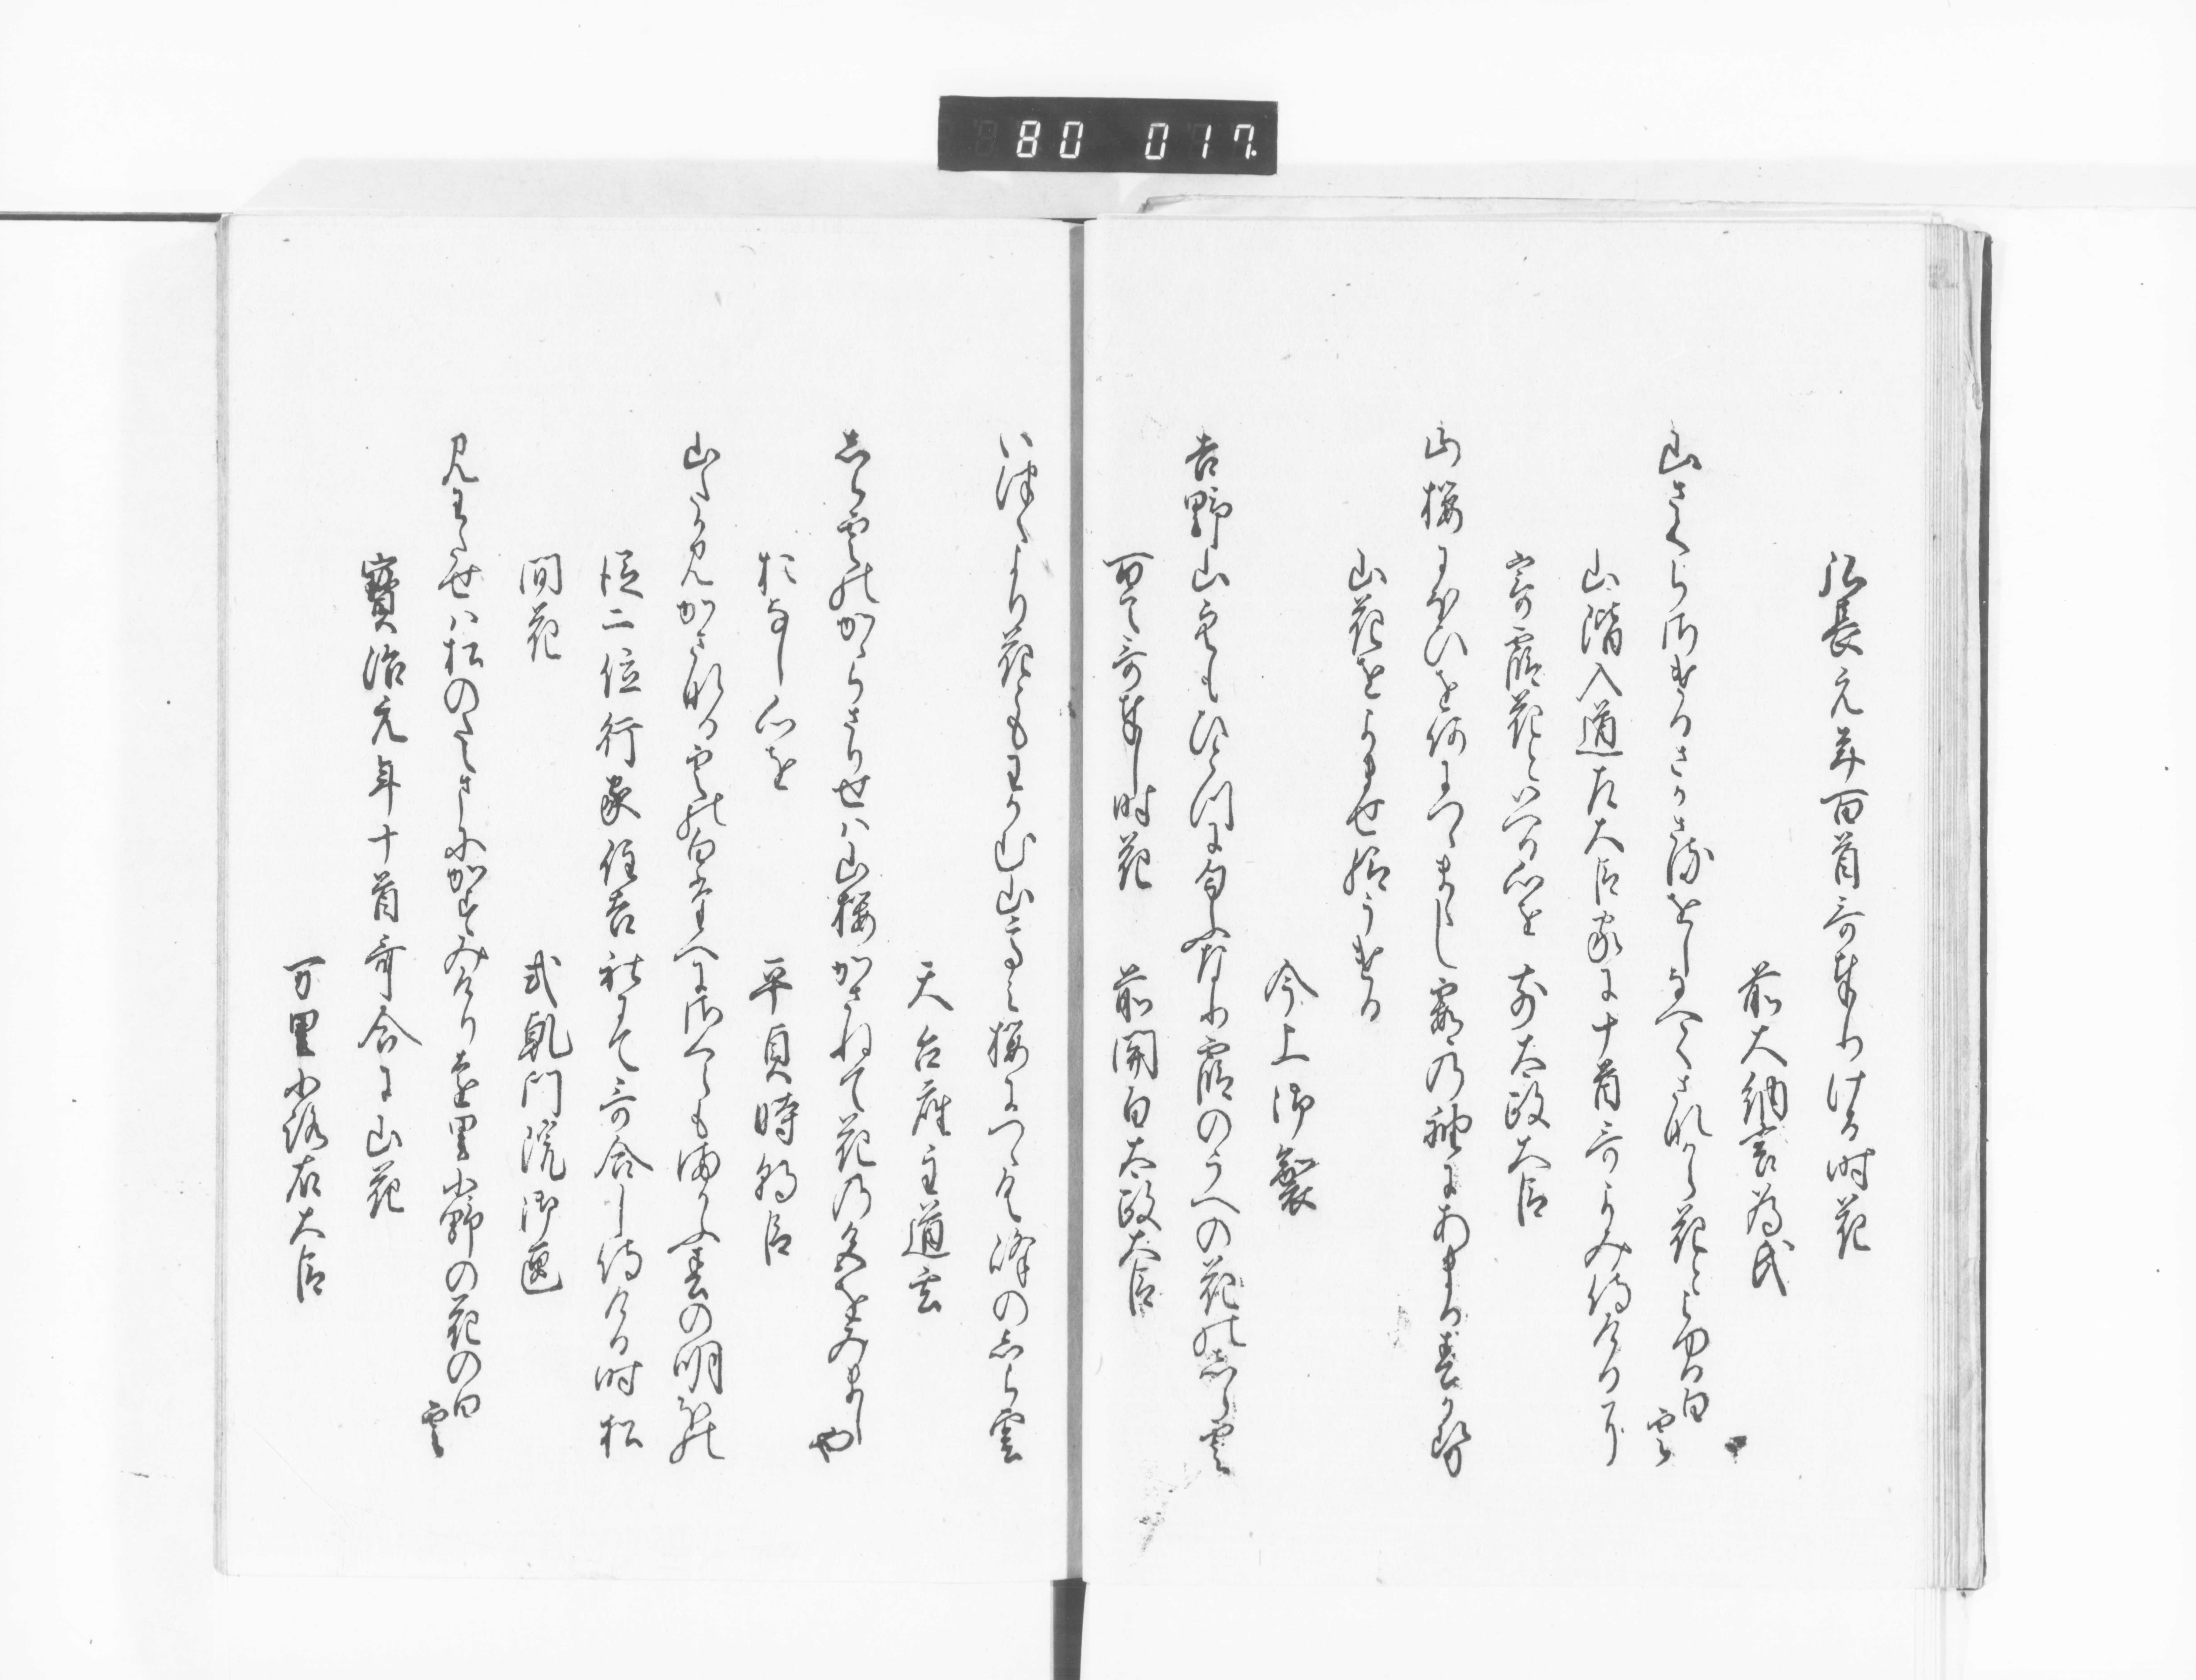 80 017
弘長元年百首哥奉りける時花
前大納言為氏
山さくらさけるさかさまをしなへてさなから花とみゆる白雲
山階入道左大臣家に十首哥よみ侍ける に
寄霞花といふ心を 前太政大臣
山桜にほひを何につゝまし霞の袖にあまる春かせ
山花をよませ給うける
今上御製
吉野山空もひとつに匂ふなり霞のうへの花のしら雲
百首哥奉し時花 前関白太政大臣
いつくより花ともわかむ山高み桜につゝく峰のしら雲
天台座主道玄
しら雲のかゝらさりせは山桜かさねて花の色をみましや
おなし心を 平貞時朝臣
山たかみかさなる雲の白妙にさくらもまかふ春の明ほの
従二位行家住吉社にて哥合し侍ける時松
間花 式乾門院御匣
見わたせは松のたえまにかすみけり遠里小野の花の白雲
寶治元年十首哥合に山花
万里小路右大臣